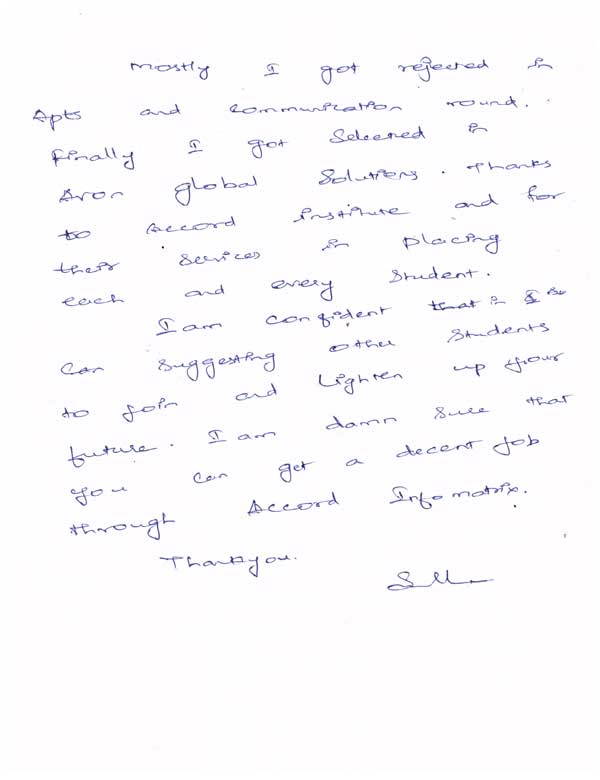 Mostly I got rejected in
Apts and communication round.
Finally I got selected in
Aron global Solutions. Thanks
to Accord institute and for
their services in placing
each and every student.
I am confident that in I
can suggesting other students
to join and lighten up your
future. I am damn sure that
you can get a decent job
through Accord Infomatrix.
Thankyou.